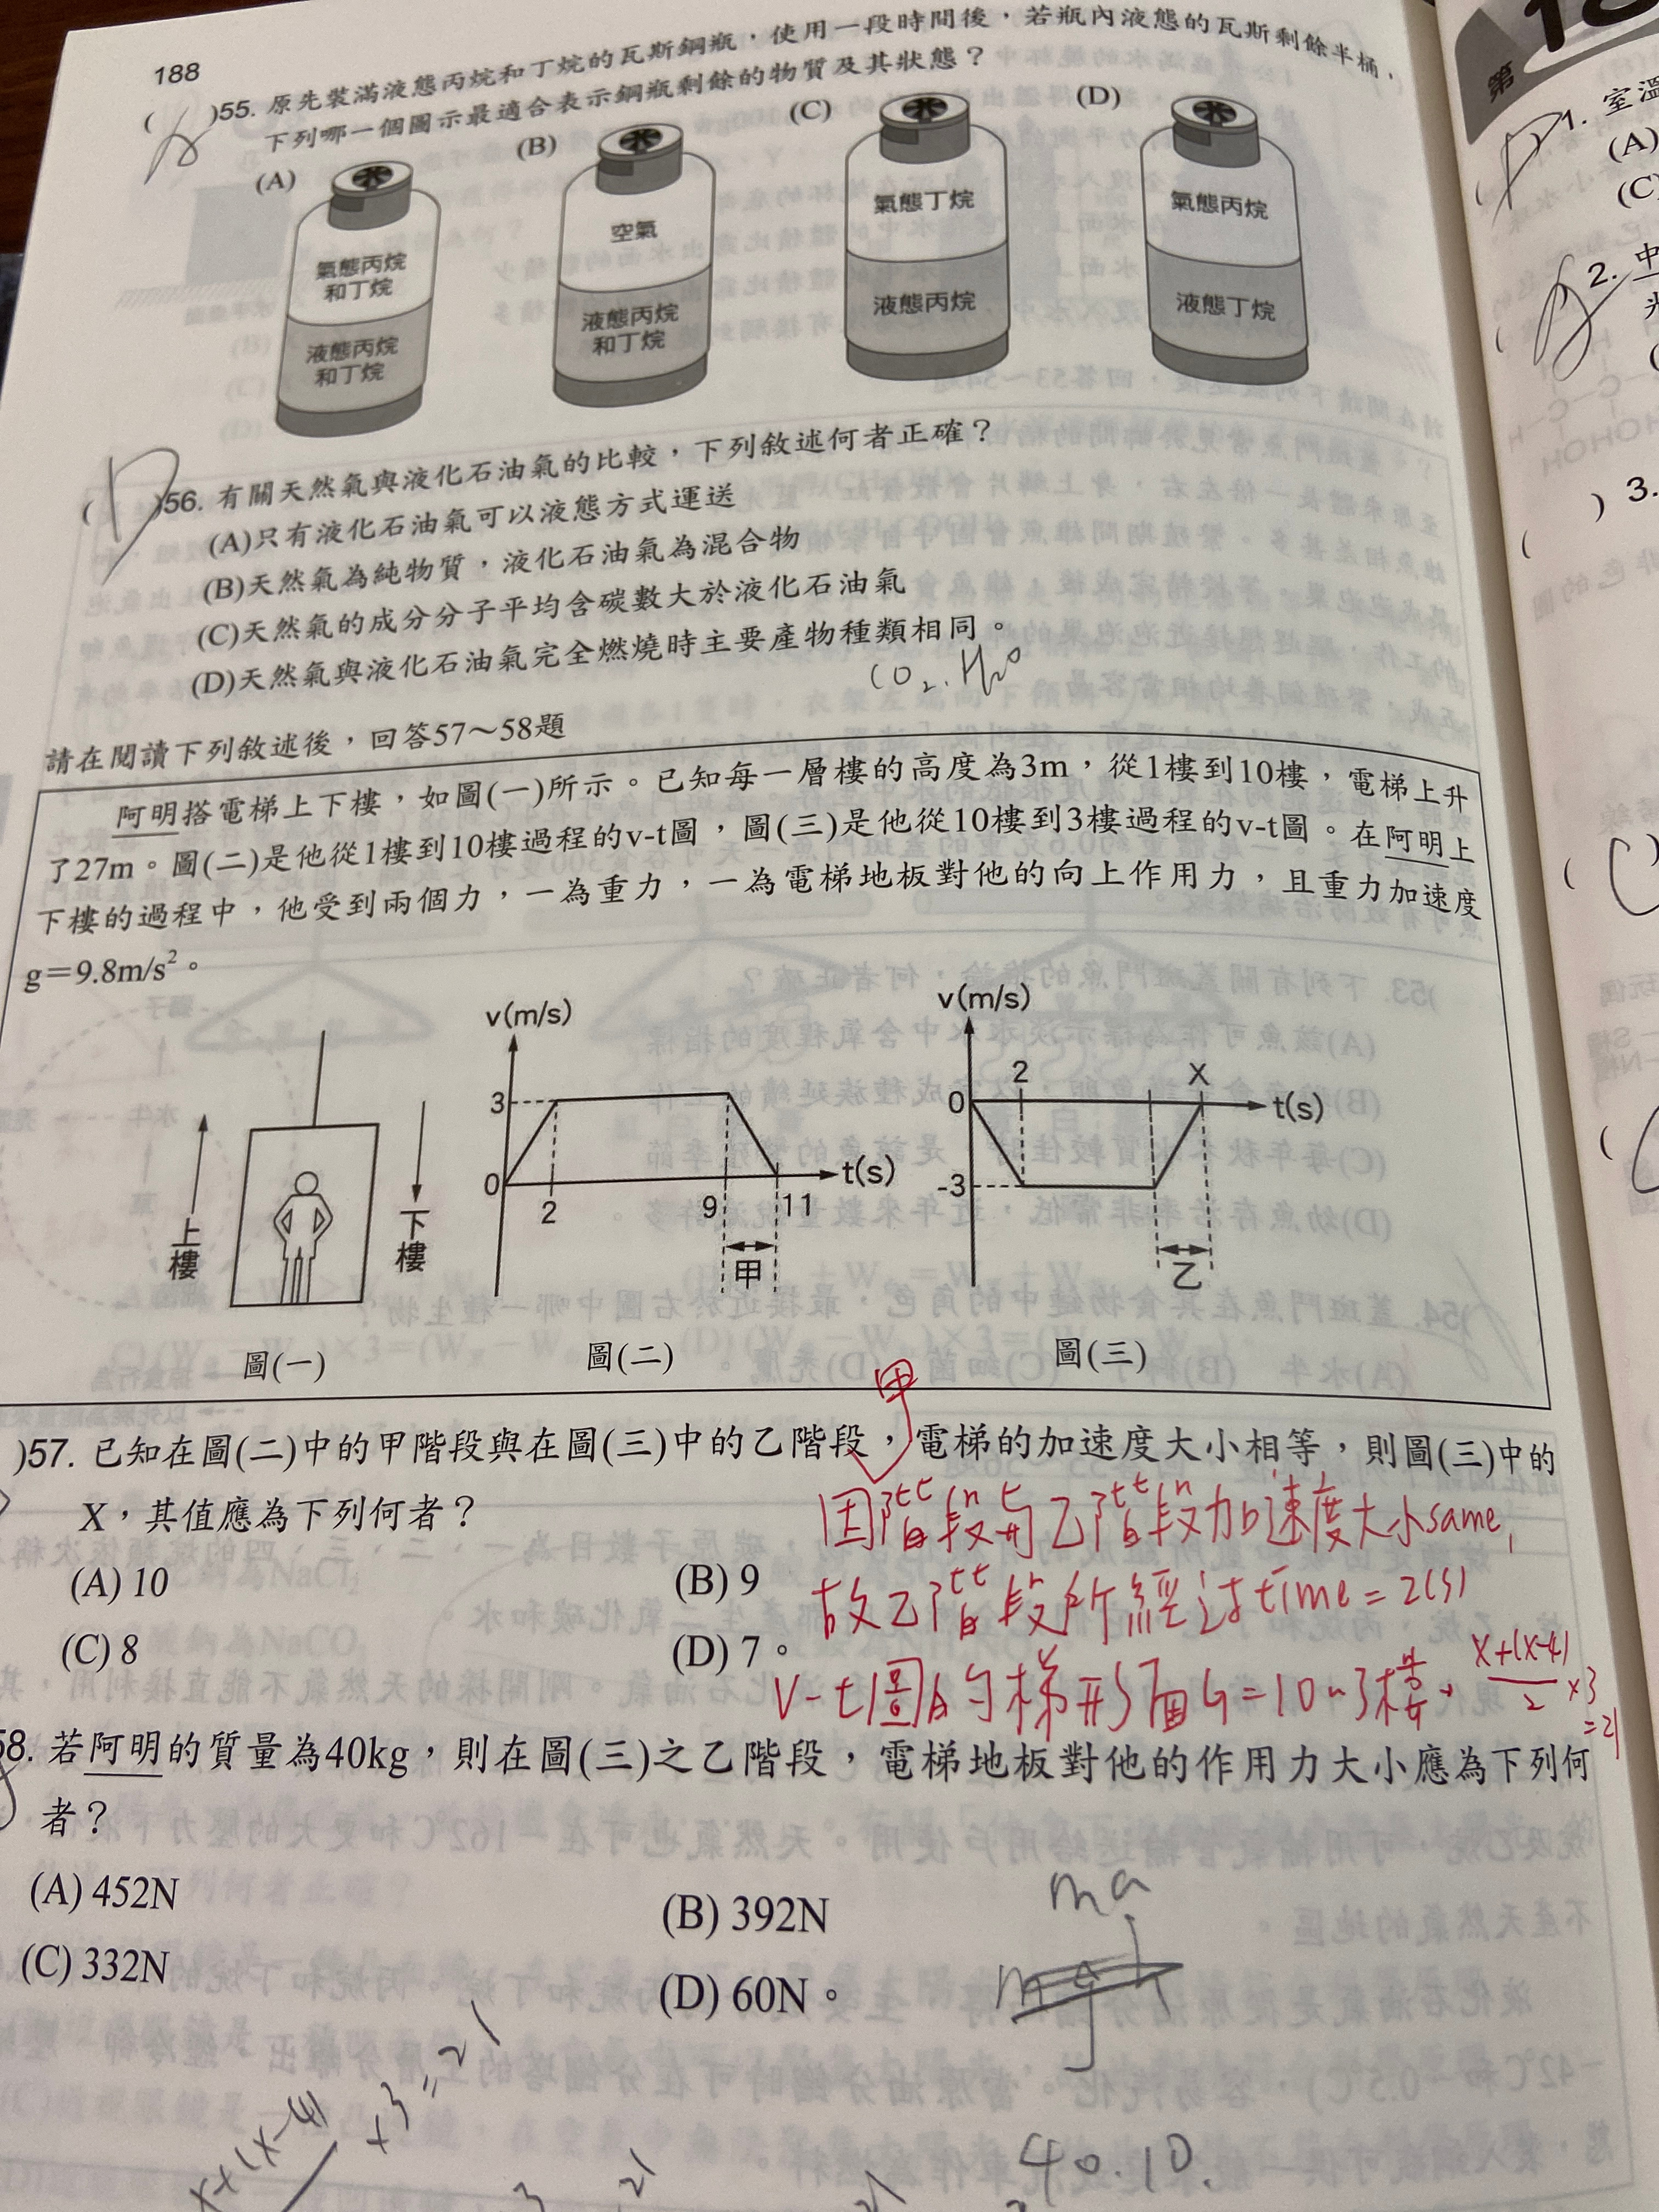 188
( A )55. 原先裝滿液態丙烷和丁烷的瓦斯鋼瓶，使用一段時間後，若瓶內液態的瓦斯剩餘半桶，
下列哪一個圖示最適合表示鋼瓶剩餘的物質及其狀態？
(A) (B) (C) (D)
氣態丙烷
和丁烷
液態丙烷
和丁烷
空氣
液態丙烷
和丁烷
氣態丁烷
液態丙烷
氣態丙烷
液態丁烷
( D )56. 有關天然氣與液化石油氣的比較，下列敘述何者正確？
(A)只有液化石油氣可以液態方式運送
(B)天然氣為純物質，液化石油氣為混合物
(C)天然氣的成分分子平均含碳數大於液化石油氣
(D)天然氣與液化石油氣完全燃燒時主要產物種類相同。
CO₂. H₂O
請在閱讀下列敘述後，回答57～58題
阿明搭電梯上下樓，如圖(一)所示。已知每一層樓的高度為3m，從1樓到10樓，電梯上升
了27m。圖(二)是他從1樓到10樓過程的v-t圖，圖(三)是他從10樓到3樓過程的v-t圖。在阿明上
下樓的過程中，他受到兩個力，一為重力，一為電梯地板對他的向上作用力，且重力加速度
g＝9.8m/s²。
上樓
下樓
圖(一)
v(m/s)
3
0
2
9
11
t(s)
甲
圖(二)
v(m/s)
0
-3
2
X
t(s)
乙
圖(三)
甲
)57. 已知在圖(二)中的甲階段與在圖(三)中的乙階段，電梯的加速度大小相等，則圖(三)中的
X，其值應為下列何者？
(A) 10
(B) 9
(C) 8
(D) 7。
因階段與乙階段加速度大小same,
故乙階段所經过time=2(s)
v-t圖的梯形面
x+(x-4)
2
×3
=21
58. 若阿明的質量為40kg，則在圖(三)之乙階段，電梯地板對他的作用力大小應為下列何
者？
(A) 452N
(B) 392N
(C) 332N
(D) 60N。
ma
x+(x-4)
×3=21
40.10.
第
1. 室溫
(A)
(C)
2. 中
) 3.